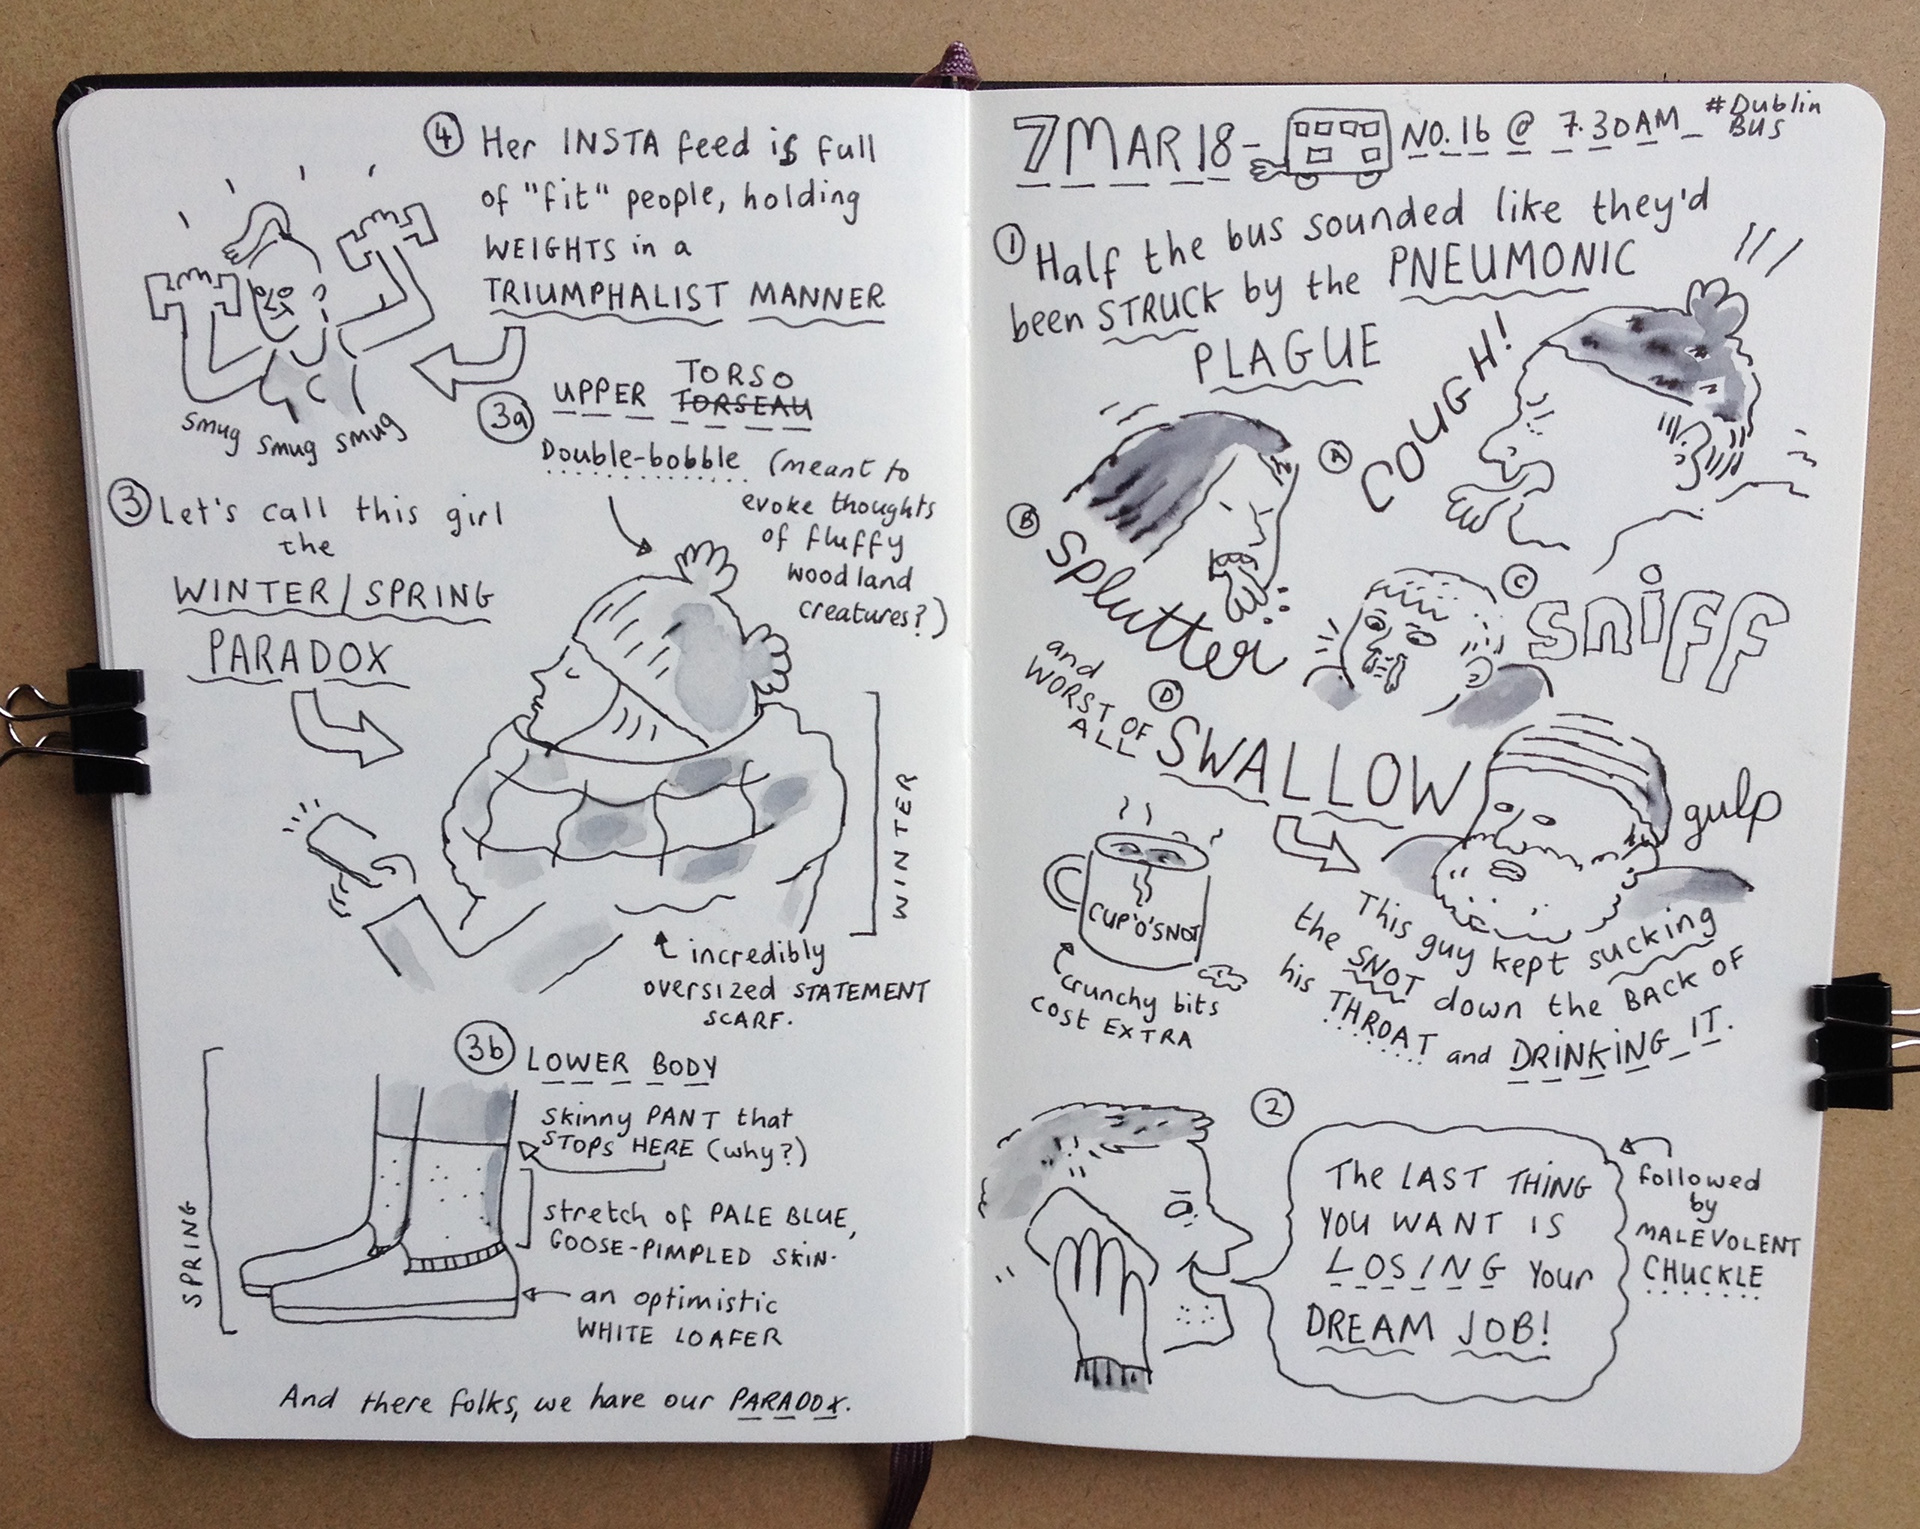 ④ Her INSTA feed is full
of "fit" people, holding
WEIGHTS in a
TRIUMPHALIST MANNER
smug smug smug
3a UPPER TORSO
TORSEAU
Double-bobble (meant to
evoke thoughts
of fluffy
woodland
creatures?)
③ Let's call this girl
the
WINTER/SPRING
PARADOX
WINTER
incredibly
oversized STATEMENT
SCARF.
3b LOWER BODY
Skinny PANT that
STOPS HERE (why?)
stretch of PALE BLUE,
GOOSE-PIMPLED SKIN.
an optimistic
WHITE LOAFER
SPRING
And there folks, we have our PARADOX.
7 MAR 18- NO.16 @ 7.30AM_ #Dublin
BUS
① Half the bus sounded like they'd
been STRUCK by the PNEUMONIC
PLAGUE
Ⓐ COUGH!
Ⓑ Splutter
Ⓒ sniff
and
WORST OF
ALL
Ⓓ SWALLOW
gulp
CUP'O'SNOT
crunchy bits
cost EXTRA
This guy kept sucking
the SNOT down the BACK OF
his THROAT and DRINKING IT.
②
The LAST THING
YOU WANT IS
LOSING Your
DREAM JOB!
followed
by
MALEVOLENT
CHUCKLE